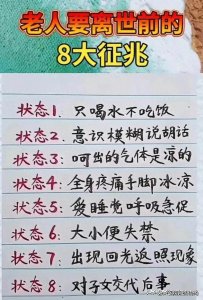 老人要离世前的
8大征兆
状态1. 只喝水不吃饭
状态2. 意识模糊说胡话
状态3: 呵出的气体是凉的
状态4: 全身疼痛手脚冰凉
状态5: 爱睡觉呼吸急促
状态6: 大小便失禁
状态7: 出现回光返照现象
状态8: 对子女交代后事